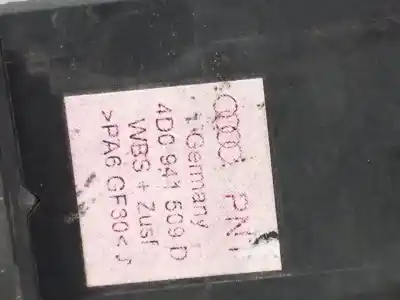 PN1
Germany
4D0 941 509 D
WBS + Zusf
>PA6 GF30<